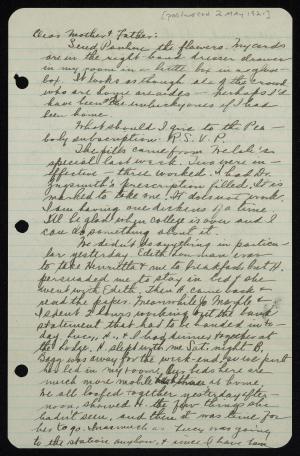 [POSTMARKED 2 MAY 1921]
Dear Mother & Father:
Send Pauline the flowers. My cards
are in the right-hand dresser drawer
in my room in a little box in a glove
box. It looks as though all of the crowd
who are home are - perhaps I'd
have been the unlucky one if I had
been home.
What should I give to the Pea-
body subscription. R.S.V.P.
The pills came from
special last week. Two were in-
effective - three worked. I had Dr.
prescription filled. It is
marked to take one. It does not work.
I am having a time.
I'll be glad when College is over and I
can do something about it.
We didn't do anything in particu-
lar yesterday. Edith
to take Henrietta & me to breakfast but H.
persuaded me to stay in bed & she
went with Edith. Then H. came back &
read the paper. Meanwhile &
I spent 2 hours working out the bank
statement that had to be handed in to-
day. Lucy, H., & I had dinner together at
the Lodge. H. slept with me Sat. night. B.
Bagg was away for the week-end, so we put
her bed in my room. Our beds here are
much more mobile than those at home.
We all loafed together yesterday after-
noon, showed H. the few things she
hadn't seen, and then it was time for
her to go. Inasmuch as Lucy was going
to the station anyhow, & since I have been